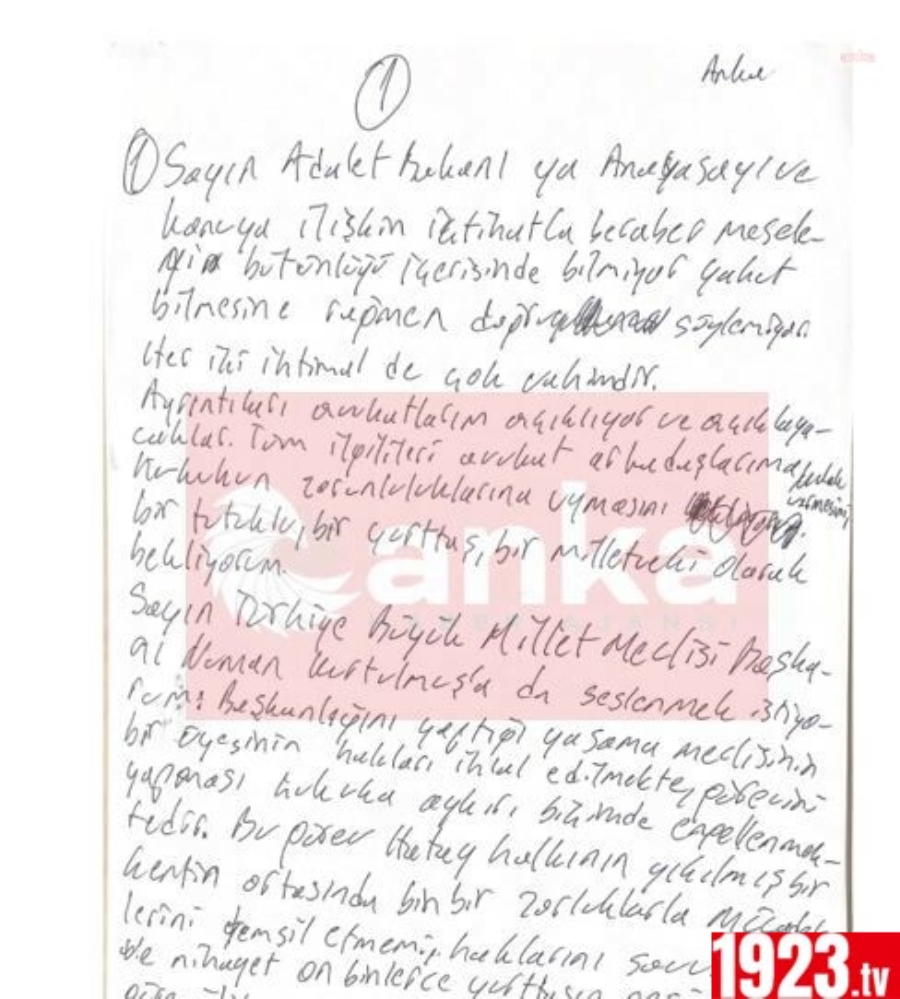 1
Anka
anka
1 Sayın Adalet Bakanı ya Anayasayı ve
konuya ilişkin içtihatla beraber mesele-
yi bütünlüğü içerisinde bilmiyor yahut
bilmesine rağmen doğruyu söylemiyor.
Her iki ihtimal de çok vahimdir.
Ayrıntıları avukatlarım açıklıyor ve açıklaya-
caklar. Tüm ilgilileri avukat arkadaşlarıma kulak
vermesini,
hukukun zorunluluklarına uymasını
bir tutuklu, bir yurttaş, bir milletvekili olarak
bekliyorum.
anka
HABER AJANSI
Sayın Türkiye Büyük Millet Meclisi Başka-
nı Numan Kurtulmuş'a da seslenmek istiyo-
rum: Başkanlığını yaptığı yasama meclisinin
bir üyesinin hakları ihlal edilmekte, görevini
yapması hukuka aykırı biçimde engellenmek-
tedir. Bu görev Hatay halkının yıkılmış bir
kentin ortasında bin bir zorluklarla
lerini temsil etmemi, haklarını
ve nihayet on binlerce yurttaşın
1923.tv